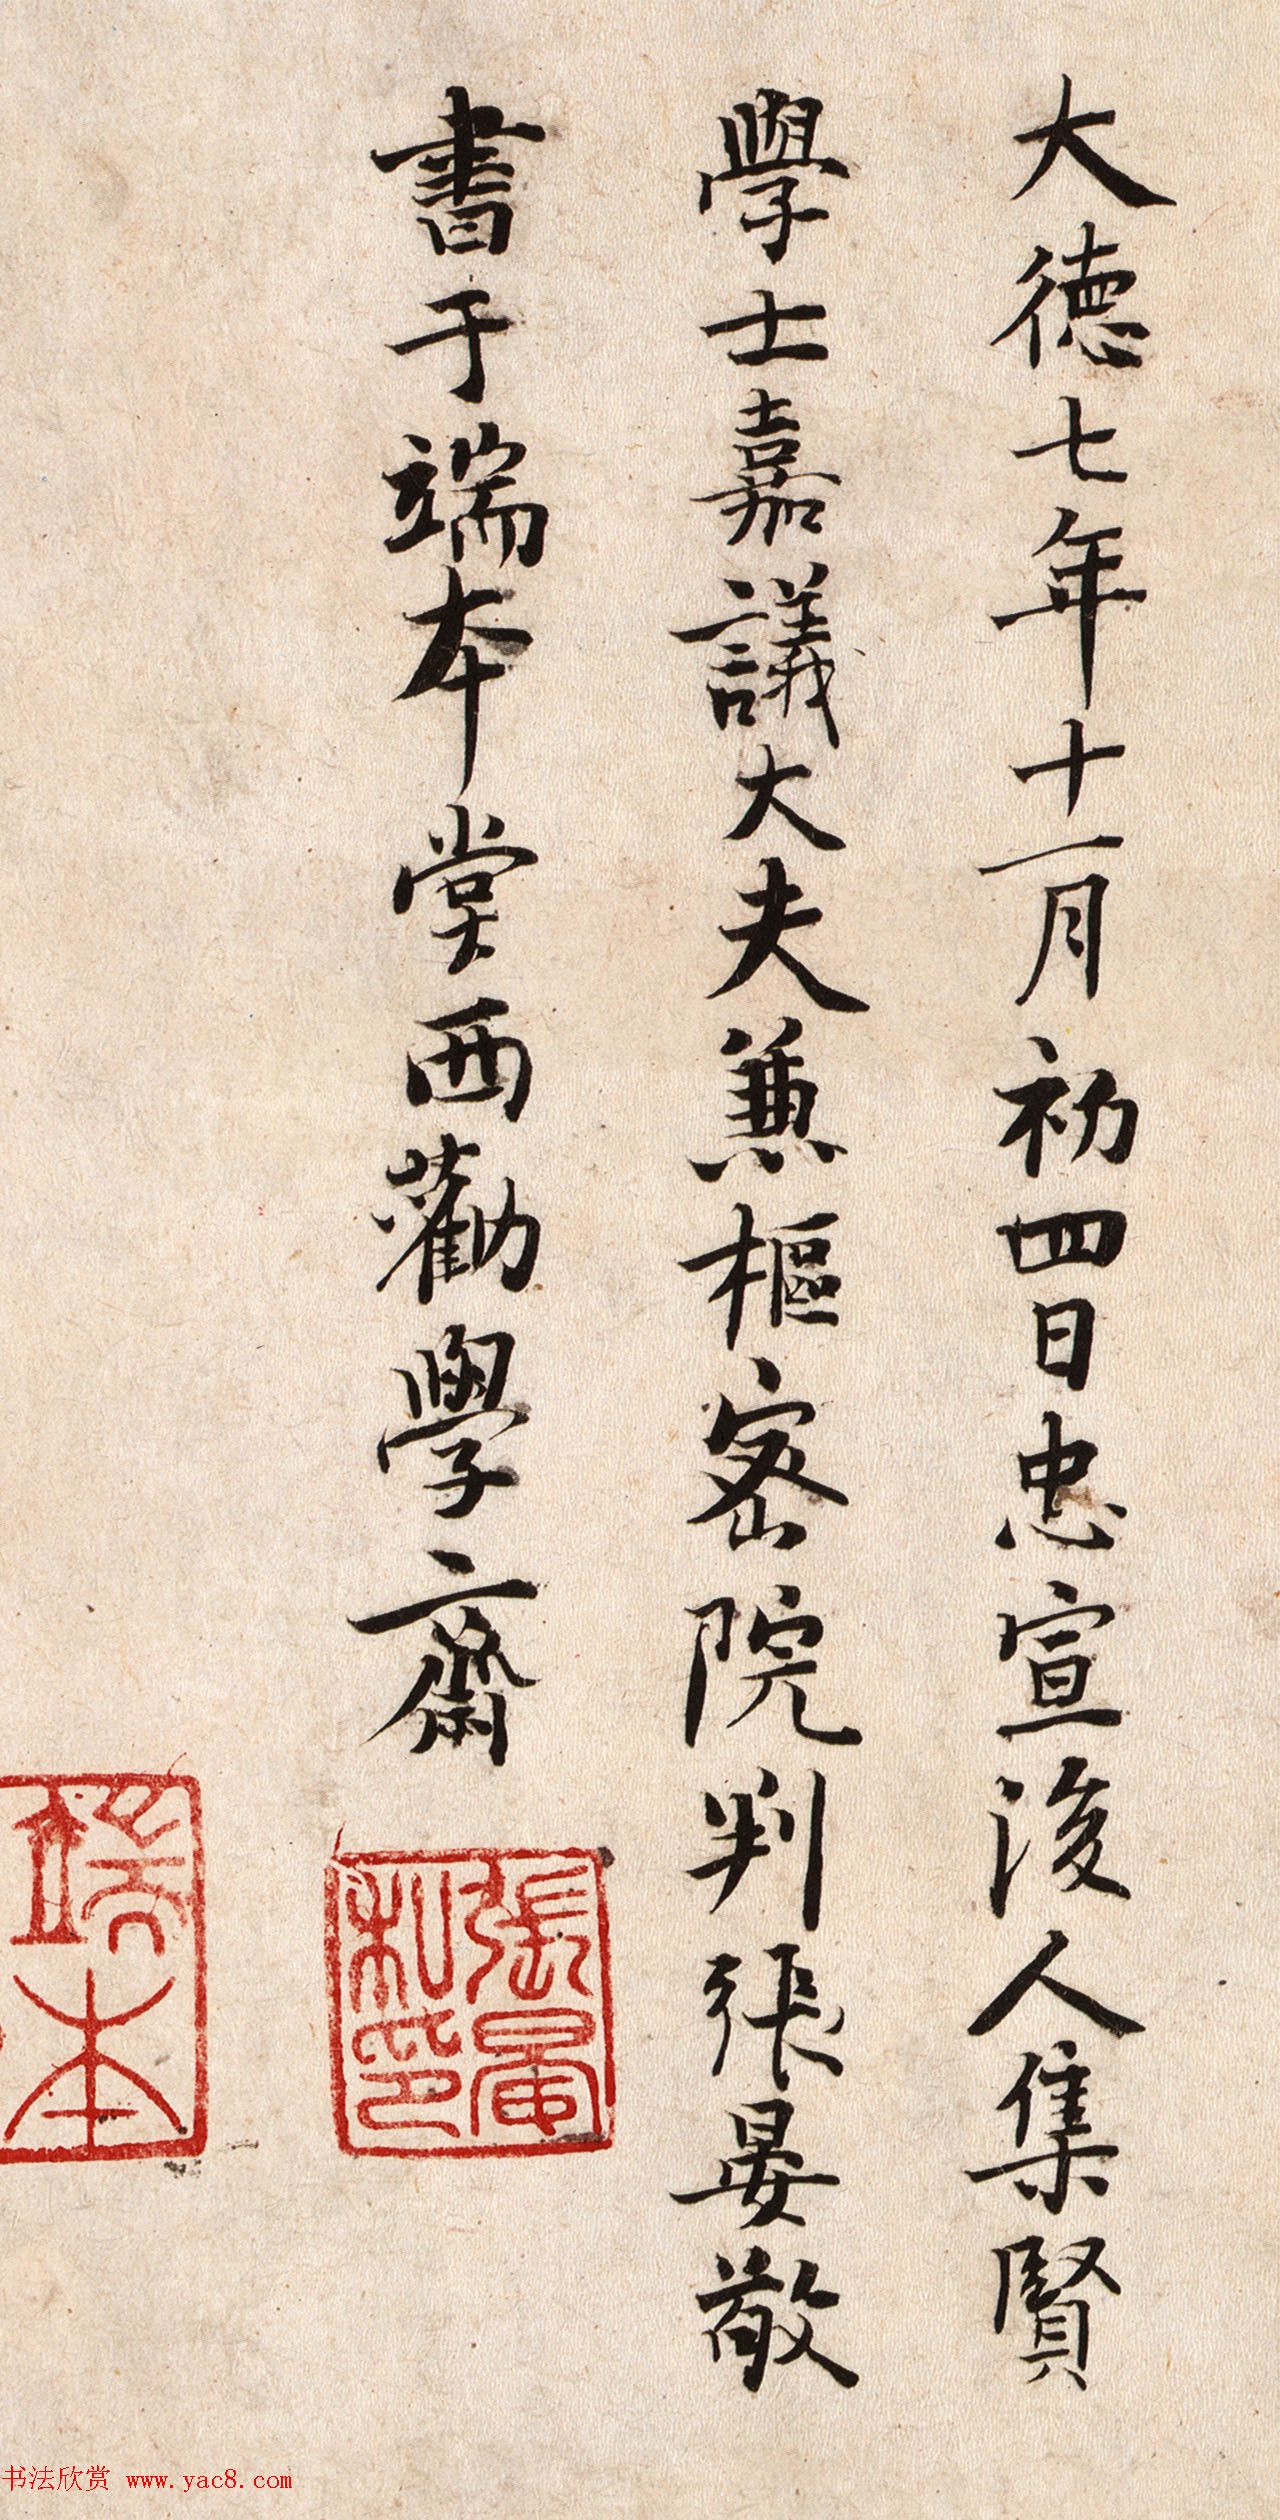 大德七年十一月初四日忠宣後人集賢
學士嘉議大夫兼樞密院判張晏敬
書于端本堂西勸學齋
張晏私印
端本
书法欣赏 www.yac8.com